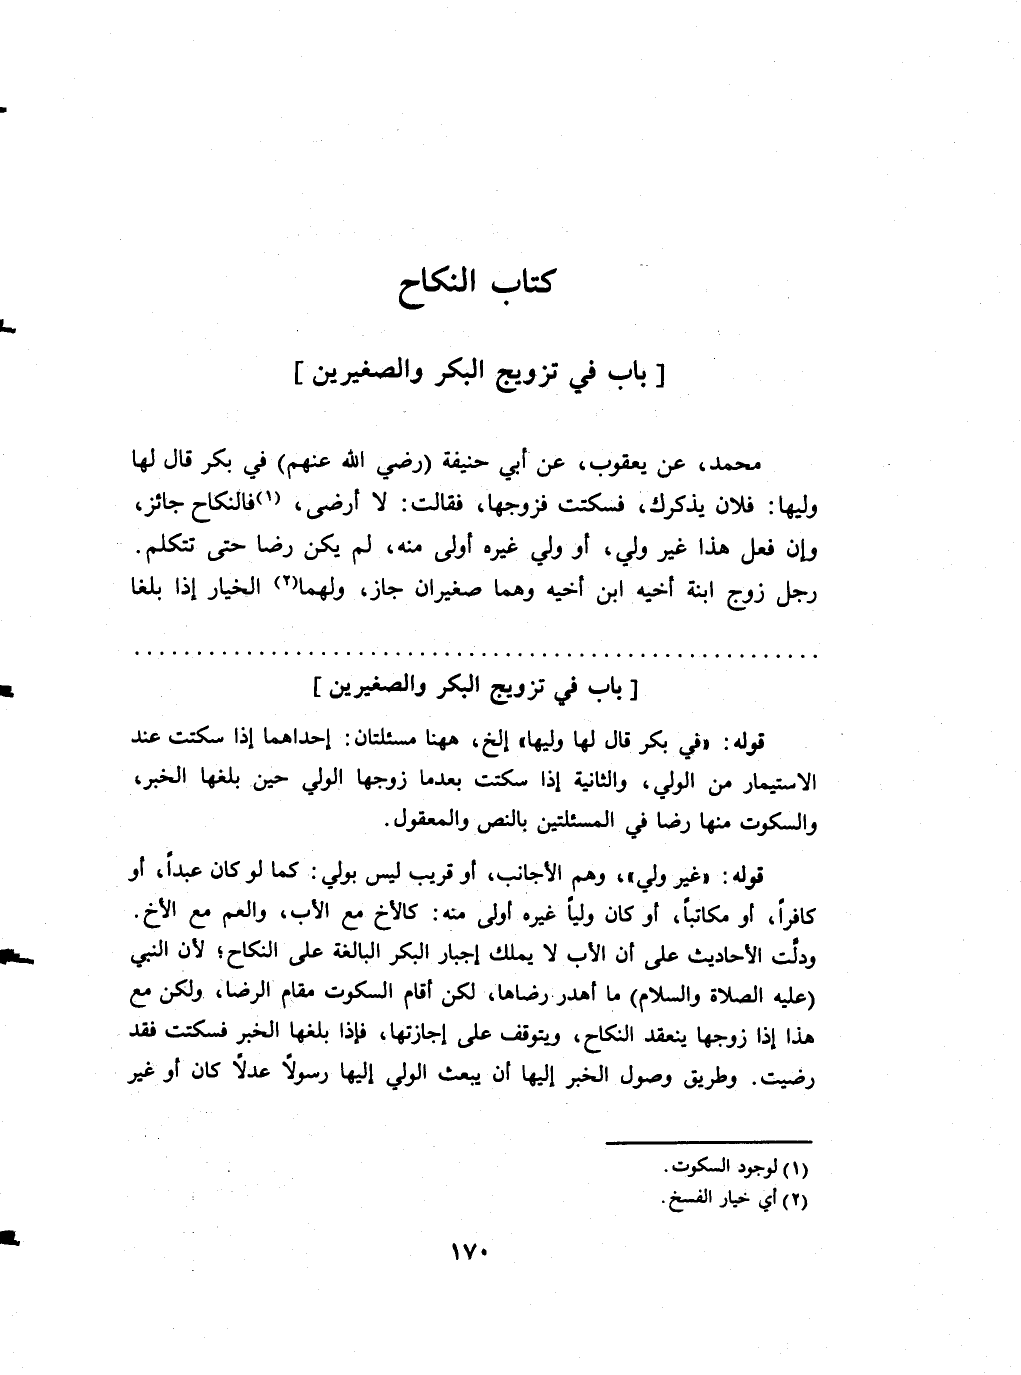 كتاب النكاح
[ باب في تزويج البكر والصغيرين ]
محمد، عن يعقوب، عن أبي حنيفة (رضي الله عنهم) في بكر قال لها
وليها: فلان يذكرك، فسكتت فزوجها، فقالت: لا أرضى، (١)فالنكاح جائز،
وإن فعل هذا غير ولي، أو ولي غيره أولى منه، لم يكن رضا حتى تتكلم.
رجل زوج ابنة أخيه ابن أخيه وهما صغيران جاز، ولهما(٢) الخيار إذا بلغا
[ باب في تزويج البكر والصغيرين ]
قوله: «في بكر قال لها وليها» إلخ، ههنا مسئلتان: إحداهما إذا سكتت عند
الاستيمار من الولي، والثانية إذا سكتت بعدما زوجها الولي حين بلغها الخبر،
والسكوت منها رضا في المسئلتين بالنص والمعقول.
قوله: «غير ولي»، وهم الأجانب، أو قريب ليس بولي: كما لو كان عبداً، أو
كافراً، أو مكاتباً، أو كان ولياً غيره أولى منه: كالأخ مع الأب، والعم مع الأخ.
ودلَّت الأحاديث على أن الأب لا يملك إجبار البكر البالغة على النكاح؛ لأن النبي
(عليه الصلاة والسلام) ما أهدر رضاها، لكن أقام السكوت مقام الرضا، ولكن مع
هذا إذا زوجها ينعقد النكاح، ويتوقف على إجازتها، فإذا بلغها الخبر فسكتت فقد
رضيت. وطريق وصول الخبر إليها أن يبعث الولي إليها رسولاً عدلاً كان أو غير
(١) لوجود السكوت.
(٢) أي خيار الفسخ.
١٧٠